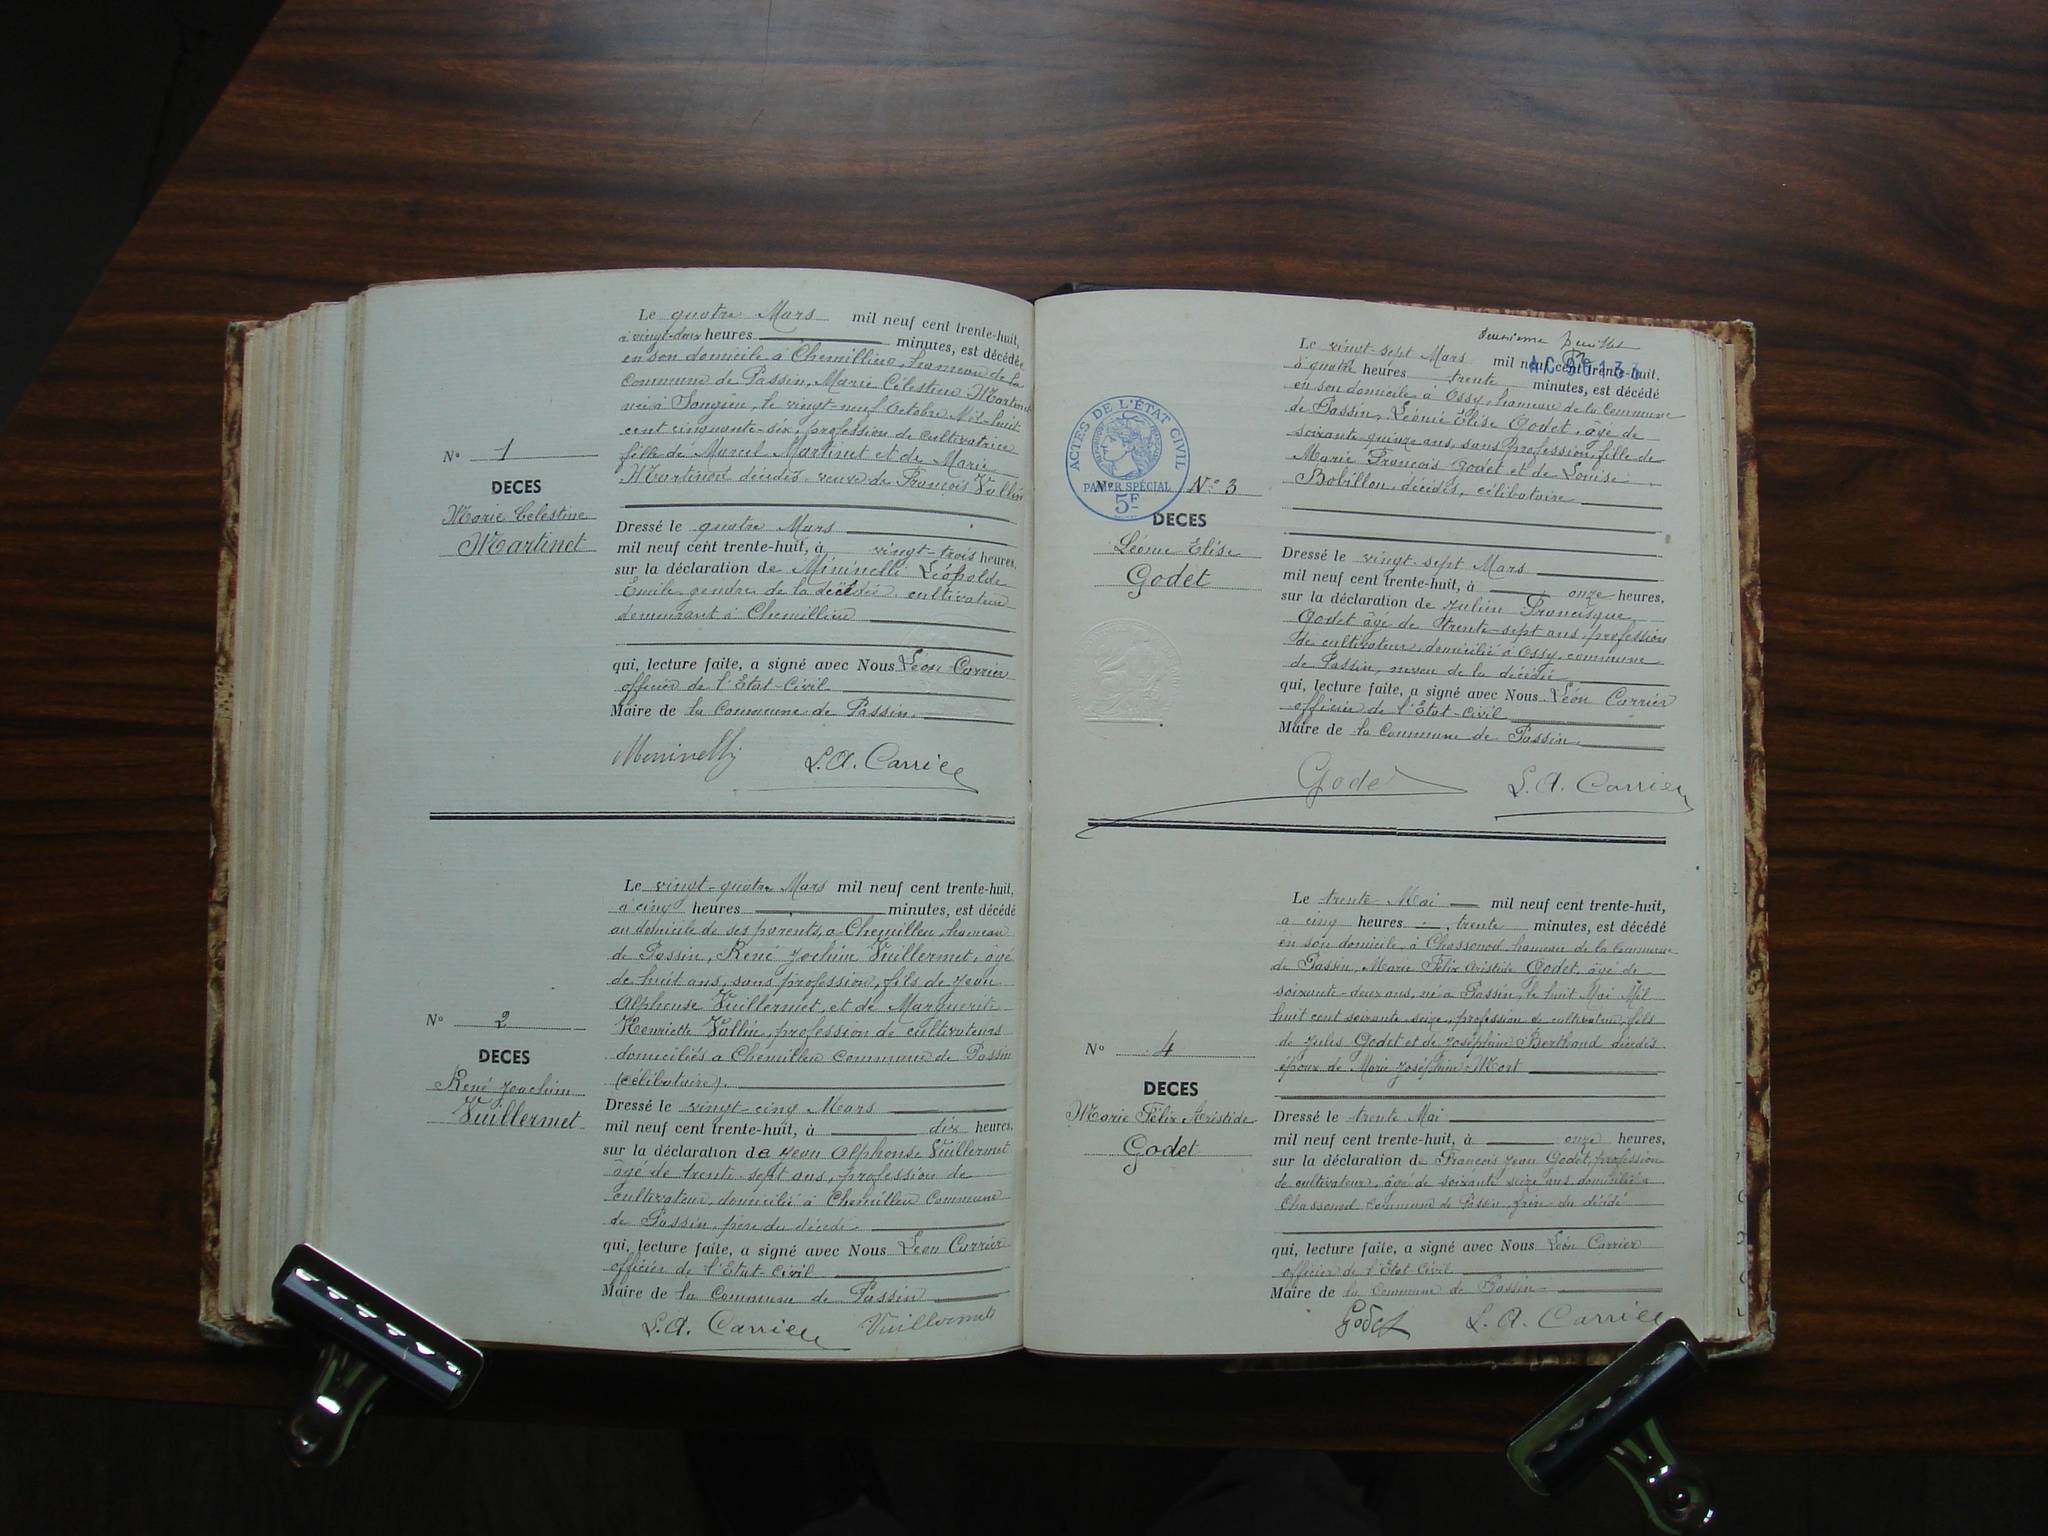 Le quatre Mars mil neuf cent trente-huit,
à vingt-deux heures minutes, est décédée
en son domicile à Chemillieu, hameau de la
commune de Passin, Marie Célestine Martinet
née à Songieu, le vingt-neuf Octobre Mil-huit
cent cinquante-six, profession de cultivatrice
fille de Marcel Martinet et de Marie
Martinod décédés, veuve de François Vallin
N° 1
DECES
Marie Célestine
Martinet
Dressé le quatre Mars
mil neuf cent trente-huit, à vingt-trois heures,
sur la déclaration de Mininelli Léopolde
Emile gendre de la décédée, cultivateur
demeurant à Chemillieu
qui, lecture faite, a signé avec Nous Léon Carrier
officier de l'Etat-Civil
Maire de la Commune de Passin.
Mininelli L.A. Carrier
Le vingt-quatre Mars mil neuf cent trente-huit,
à cinq heures minutes, est décédé
au domicile de ses parents, à Chemilleu, hameau
de Passin, René Jochim Vuillermet, âgé
de huit ans, sans profession, fils de Jean
Alphonse Vuillermet, et de Marguerite
Henriette Vallin, profession de cultivateurs
domiciliés à Chemilleu commune de Passin
(célibataire).
N° 2
DECES
René Joachim
Vuillermet
Dressé le vingt-cinq Mars
mil neuf cent trente-huit, à dix heures,
sur la déclaration de Jean Alphonse Vuillermet
âgé de trente-sept ans, profession de
cultivateur, domicilié à Chemilleu Commune
de Passin, père du décédé.
qui, lecture faite, a signé avec Nous Léon Carrier
officier de l'Etat-Civil
Maire de la Commune de Passin
L.A. Carrier Vuillermet
Deuxième feuillet
Le vingt-sept Mars mil neuf cent trente-huit,
à quatre heures trente minutes, est décédé
en son domicile à Ossy, hameau de la Commune
de Passin, Léonie Élise Godet, âgé de
soixante-quinze ans, sans profession, fille de
Marie François Godet et de Louise
Bobillon, décédés, célibataire
ACTES DE L'ÉTAT CIVIL
PAPIER SPÉCIAL
5F
N° 3
DECES
Léonie Elise
Godet
Dressé le vingt-sept Mars
mil neuf cent trente-huit, à onze heures,
sur la déclaration de Julien Francisque
Godet âgé de trente-sept ans, profession
de cultivateur, domicilié à Ossy, commune
de Passin, neveu de la décédée
qui, lecture faite, a signé avec Nous Léon Carrier
officier de l'Etat-Civil
Maire de la Commune de Passin.
Godet L.A. Carrier
Le trente Mai mil neuf cent trente-huit,
à cinq heures trente minutes, est décédé
en son domicile à Chassonod hameau de la Commune
de Passin, Marie Félix Aristide Godet, âgé de
soixante-deux ans, né à Passin, le huit Mai Mil
huit cent soixante-seize, profession de cultivateur, fils
de Jules Godet et de Joséphine Berthand décédés
époux de Marie Joséphine Mort
N° 4
DECES
Marie Félix Aristide
Godet
Dressé le trente Mai
mil neuf cent trente-huit, à onze heures,
sur la déclaration de François Jean Godet, profession
de cultivateur, âgé de soixante seize ans domicilié à
Chassonod Commune de Passin, frère du décédé
qui, lecture faite, a signé avec Nous Léon Carrier
officier de l'Etat Civil
Maire de la Commune de Passin
Godet L.A. Carrier